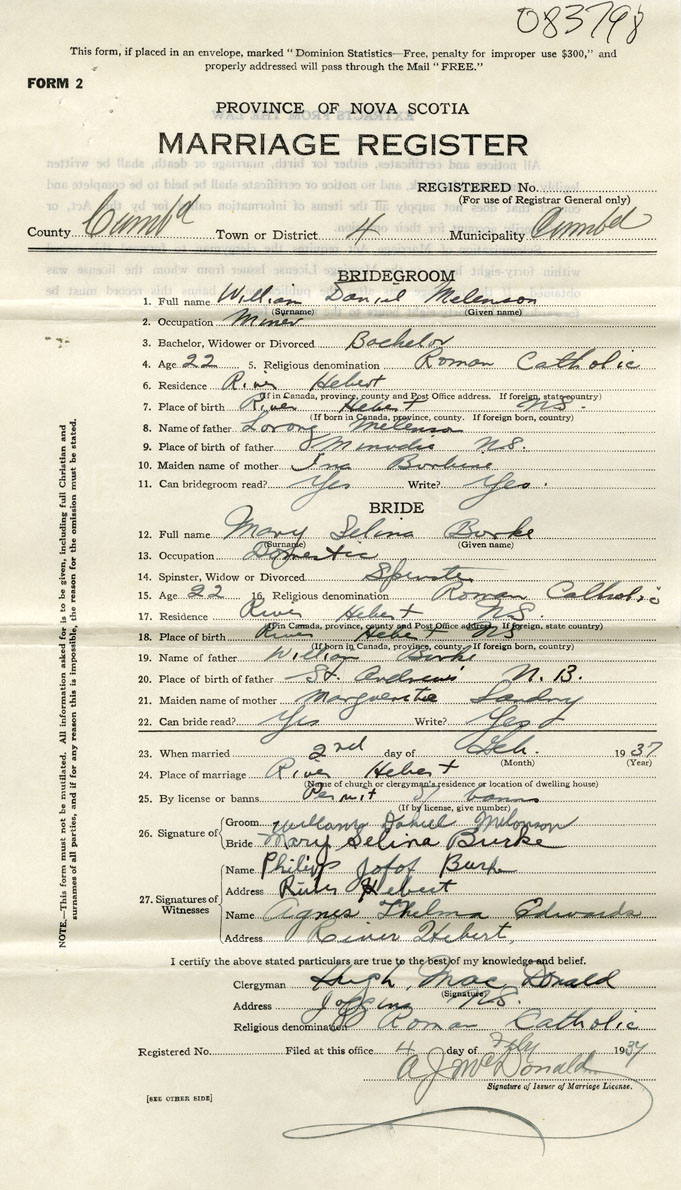 083798
This form, if placed in an envelope, marked "Dominion Statistics—Free, penalty for improper use $300," and
properly addressed will pass through the Mail "FREE."
FORM 2
PROVINCE OF NOVA SCOTIA
MARRIAGE REGISTER
REGISTERED No.
(For use of Registrar General only)
County Cumb'd Town or District 4 Municipality Cumbd
BRIDEGROOM
1. Full name William Daniel Melenson
(Surname) (Given name)
2. Occupation Miner
3. Bachelor, Widower or Divorced Bachelor
4. Age 22 5. Religious denomination Roman Catholic
6. Residence River Hebert
(If in Canada, province, county and Post Office address. If foreign, state country)
7. Place of birth River Hebert NS.
(If born in Canada, province, county. If foreign born, country)
8. Name of father Melenson
9. Place of birth of father Minudie NS.
10. Maiden name of mother Ina
11. Can bridegroom read? Yes Write? Yes.
BRIDE
12. Full name Mary Selina Burke
(Surname) (Given name)
13. Occupation Domestic
14. Spinster, Widow or Divorced Spinster
15. Age 22 16. Religious denomination Roman Catholic
17. Residence River Hebert NS.
(If in Canada, province, county and Post Office address. If foreign, state country)
18. Place of birth River Hebert NS
(If born in Canada, province, county. If foreign born, country)
19. Name of father William Burke
20. Place of birth of father St. Andrews N.B.
21. Maiden name of mother Landry
22. Can bride read? Yes Write? Yes
23. When married 2nd day of Feb. 1937
(Month) (Year)
24. Place of marriage River Hebert
(Name of church or clergyman's residence or location of dwelling house)
25. By license or banns Permit banns
(If by license, give number)
26. Signature of Groom William Daniel Melonson
Bride Mary Selina Burke
27. Signatures of Witnesses
Name Philip Burke
Address River Hebert
Name Agnes Thelma Edwards
Address River Hebert,
I certify the above stated particulars are true to the best of my knowledge and belief.
Clergyman Hugh MacDonald
(Signature)
Address Joggins NS.
Religious denomination Roman Catholic
Registered No. Filed at this office 4 day of 1937
A J McDonald
Signature of Issuer of Marriage License.
[SEE OTHER SIDE]
NOTE.—This form must not be mutilated. All information asked for is to be given, including full Christian and
surnames of all parties, and if for any reason this is impossible, the reason for the omission must be stated.